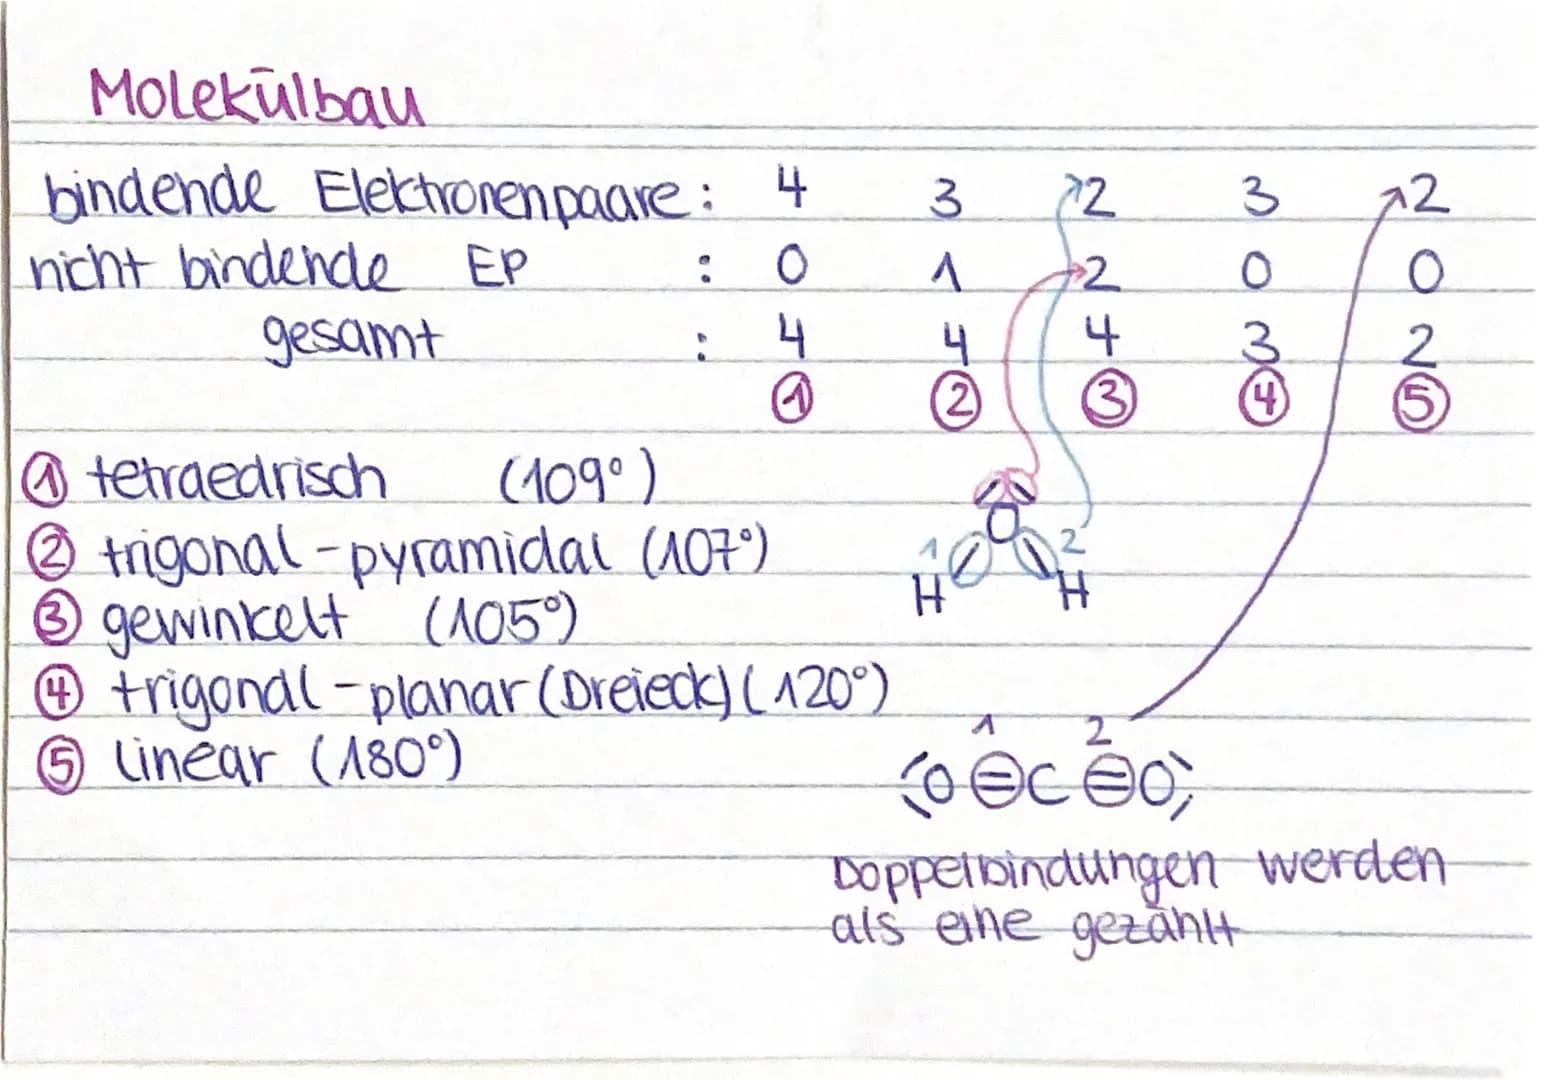 Molekülbau
bindende Elektronenpaare: 4 3 2 3 2
nicht bindende EP : 0 1 2 0 0
gesamt : 4 4 4 3 2
① ② ③ ④ ⑤
① tetraedrisch (109°)
② trigonal-pyramidal (107°)
③ gewinkelt (105°)
④ trigonal-planar (Dreieck) (120°)
⑤ linear (180°)
O
1 2
H H
1 2
O=C=O
Doppelbindungen werden
als eine gezählt